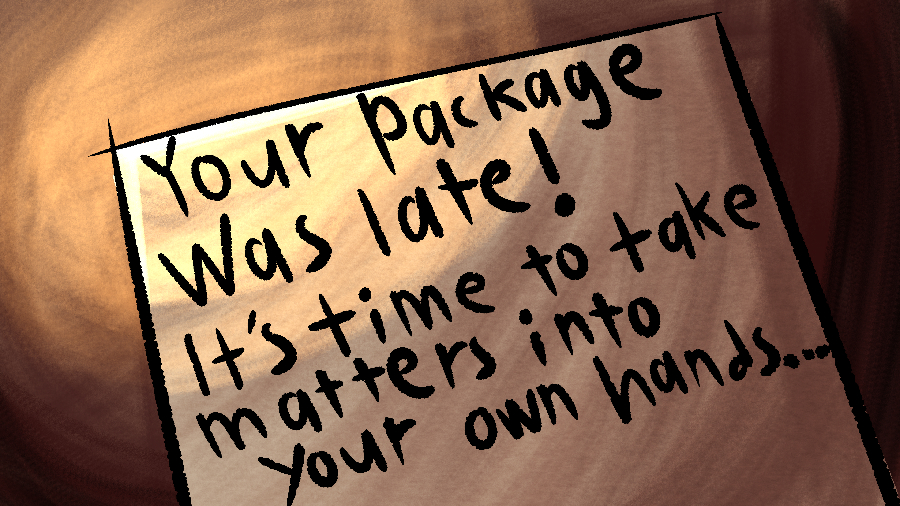 Your package
Was late!
It's time to take
matters into
your own hands...